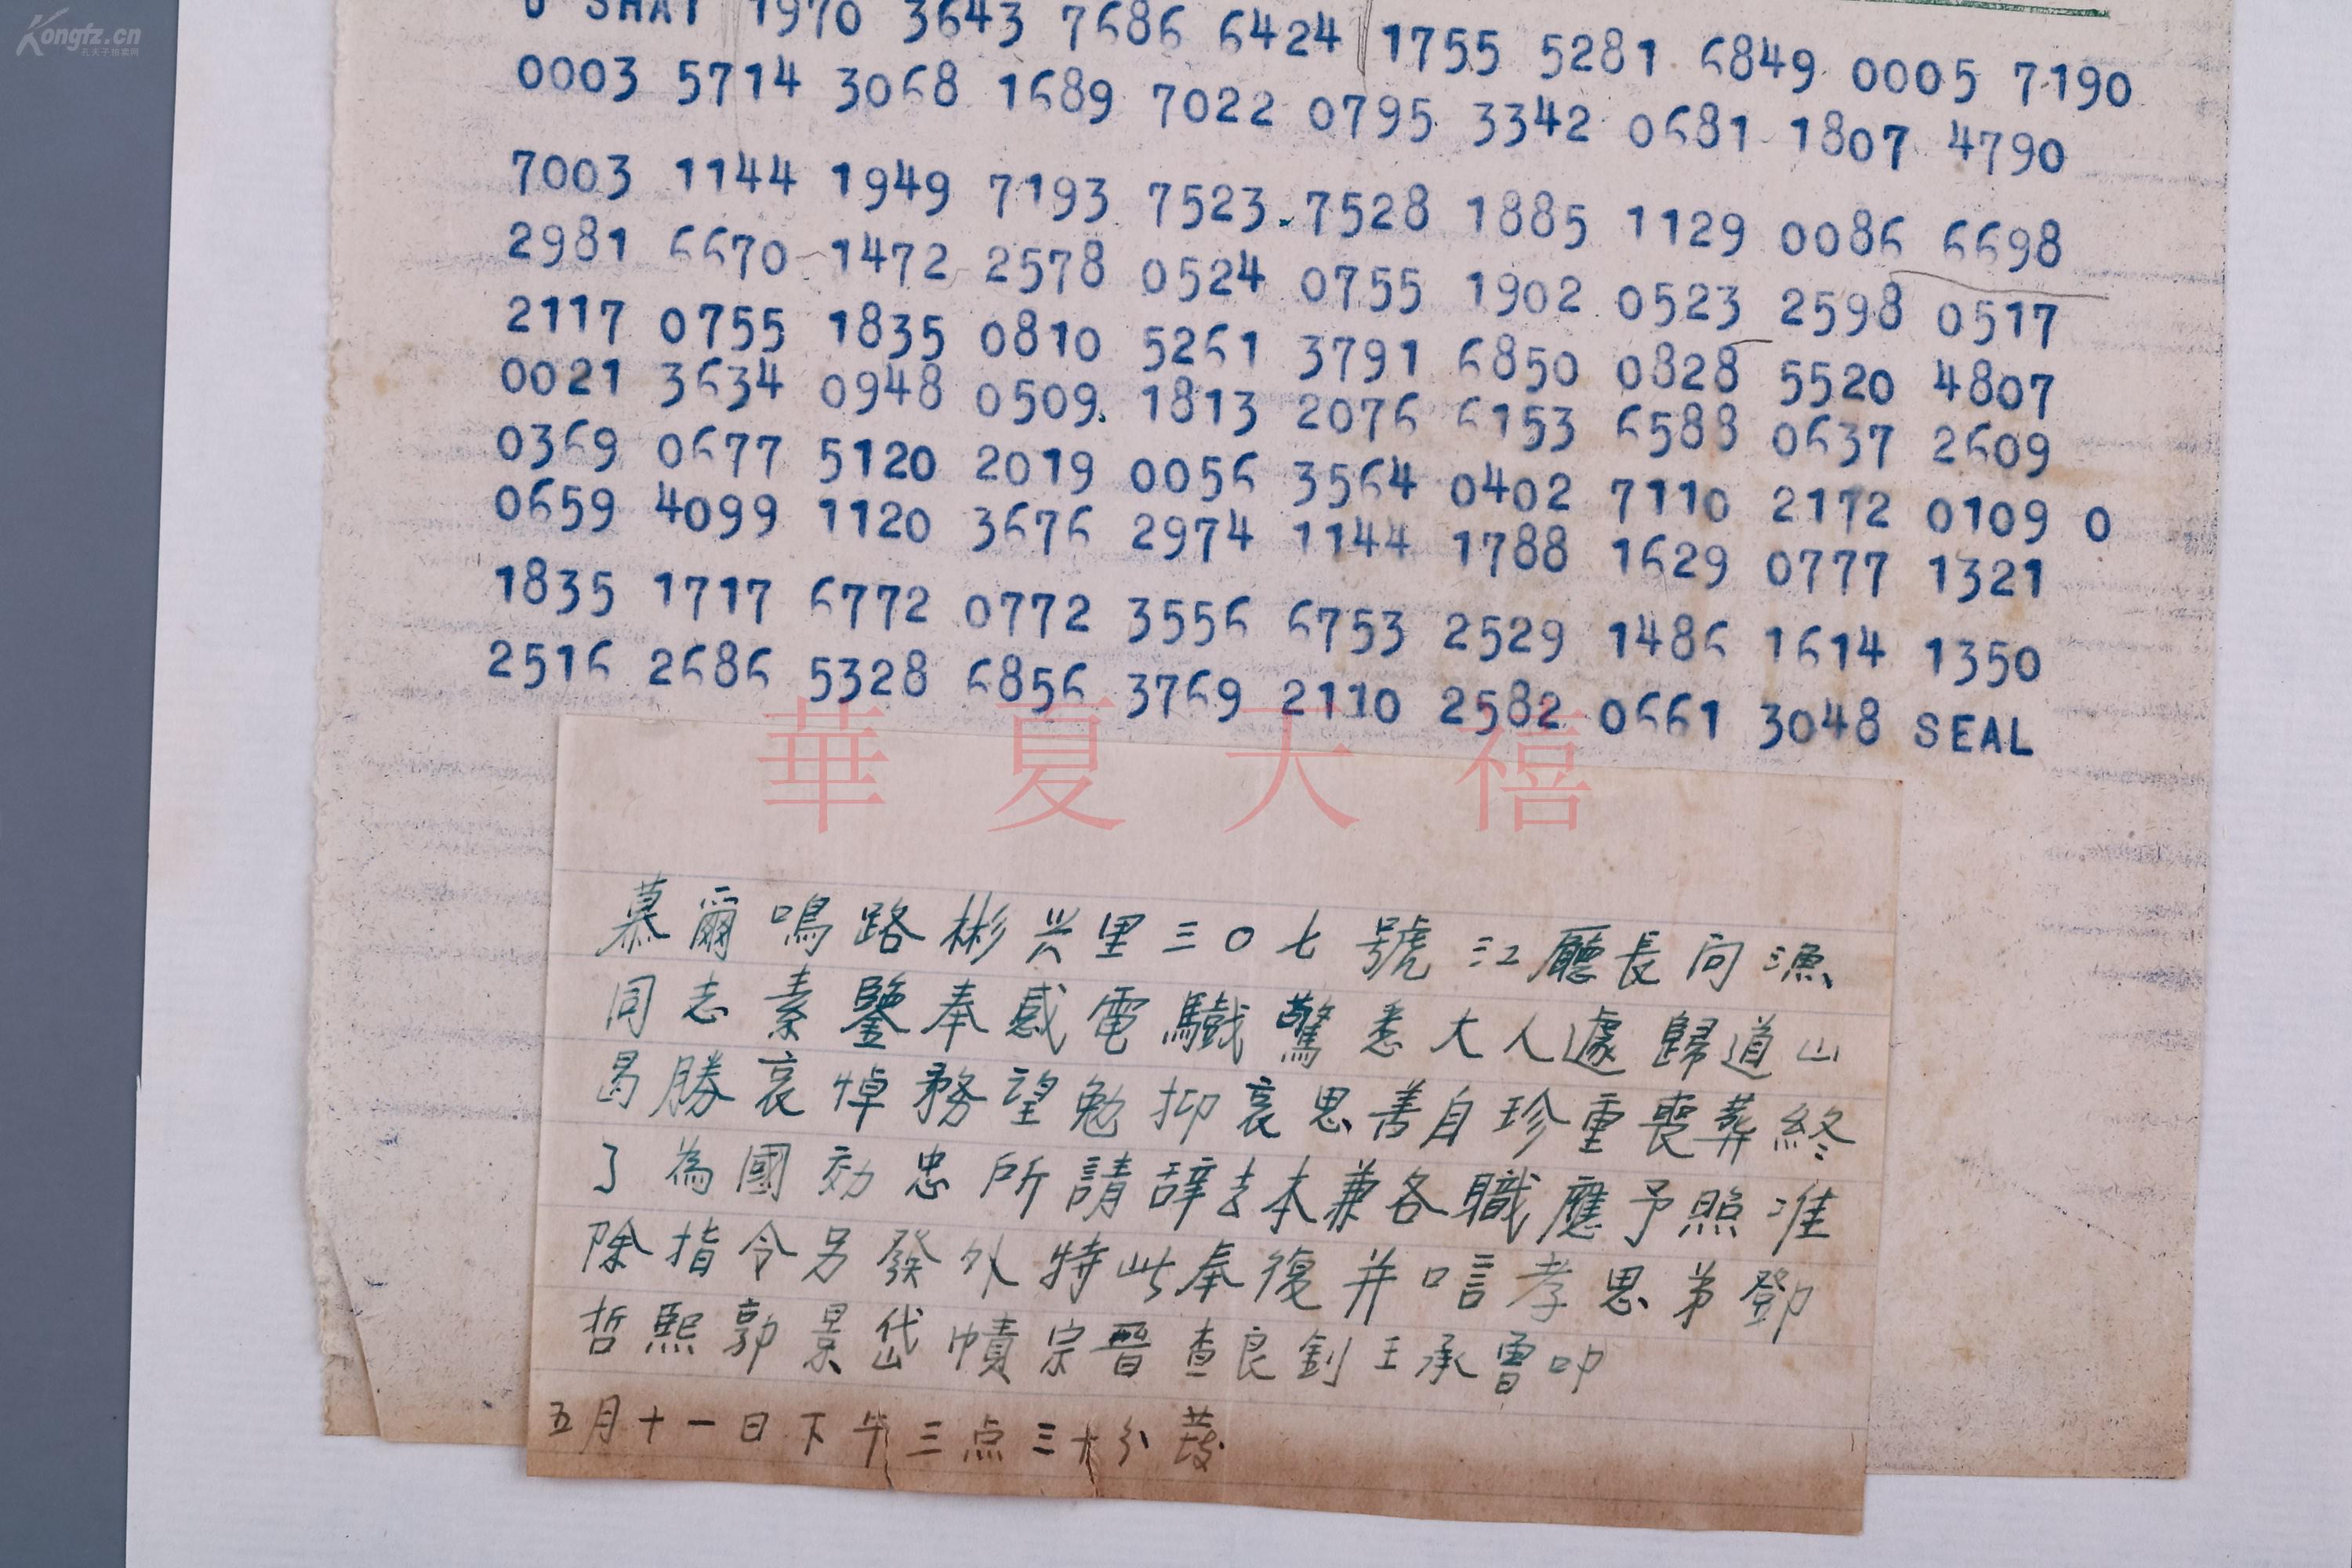 Kongfz.cn
孔夫子拍卖网
SHAI 1970 3643 7686 6424 1755 5281 6849 0005 7190
0003 5714 3068 1689 7022 0795 3342 0681 1807 4790
7003 1144 1949 7193 7523 7528 1885 1129 0086 6698
2981 6670 1472 2578 0524 0755 1902 0523 2598 0517
2117 0755 1835 0810 5261 3791 6850 0828 5520 4807
0021 3634 0948 0509 1813 2076 6153 6583 0637 2609
0369 0677 5120 2019 0056 3564 0402 7110 2172 0109 0
0659 4099 1120 3676 2974 1144 1788 1629 0777 1321
1835 1717 6772 0772 3556 6753 2529 1486 1614 1350
2516 2686 5328 6856 3769 2110 2582 0661 3048 SEAL
華夏天禧
慕爾鳴路彬兴里三〇七號江廳長向漁
同志素鑒奉感電驖驚悉大人遽歸道山
曷勝哀悼務望勉抑哀思善自珍重喪葬終
了為國効忠所請辞去本兼各職應予照准
除指令另發外特此奉復并唁孝思弟鄧
哲熙郭景岱幘宗晋查良釗王承曾叩
五月十一日下午三点三十分